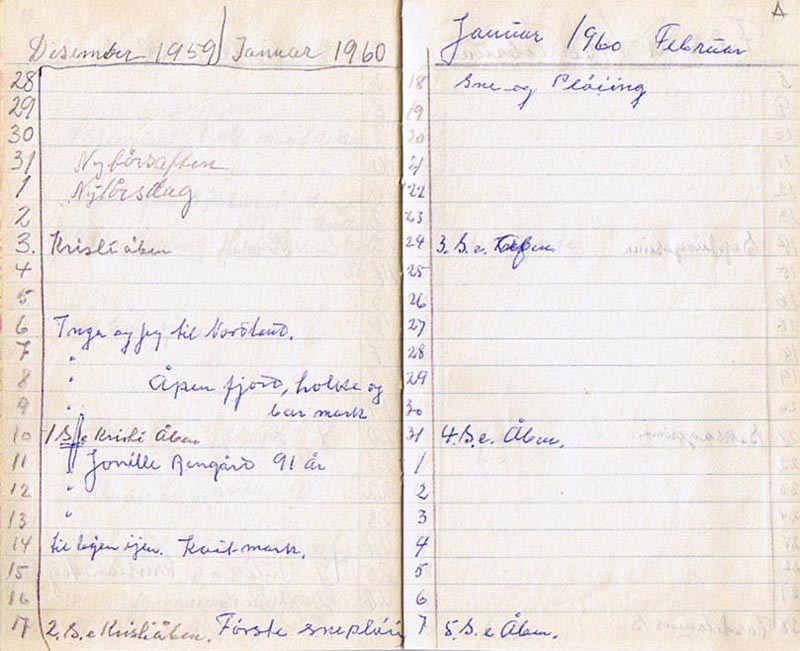 Desember 1959 / Januar 1960
28
29
30
31 Nyttårsaften
1 Nyttårsdag
2
3. Kristi åben
4
5
6 Inga og jeg til Nordland.
7 "
8 " Åpen fjord, holke og
9 " bar mark
10 1 S. e Kristi Åben
11 91 år
12 "
13 "
14 til byen ijen. Kvit mark.
15
16
17 2. S. e Kristi åben. Förste sneplöi
Januar 1960 Februar
18 Sne og Plöiing
19
20
21
22
23
24 3. S. e.
25
26
27
28
29
30
31 4. S. e. Åben.
1
2
3
4
5
6
7 5. S. e Åben.